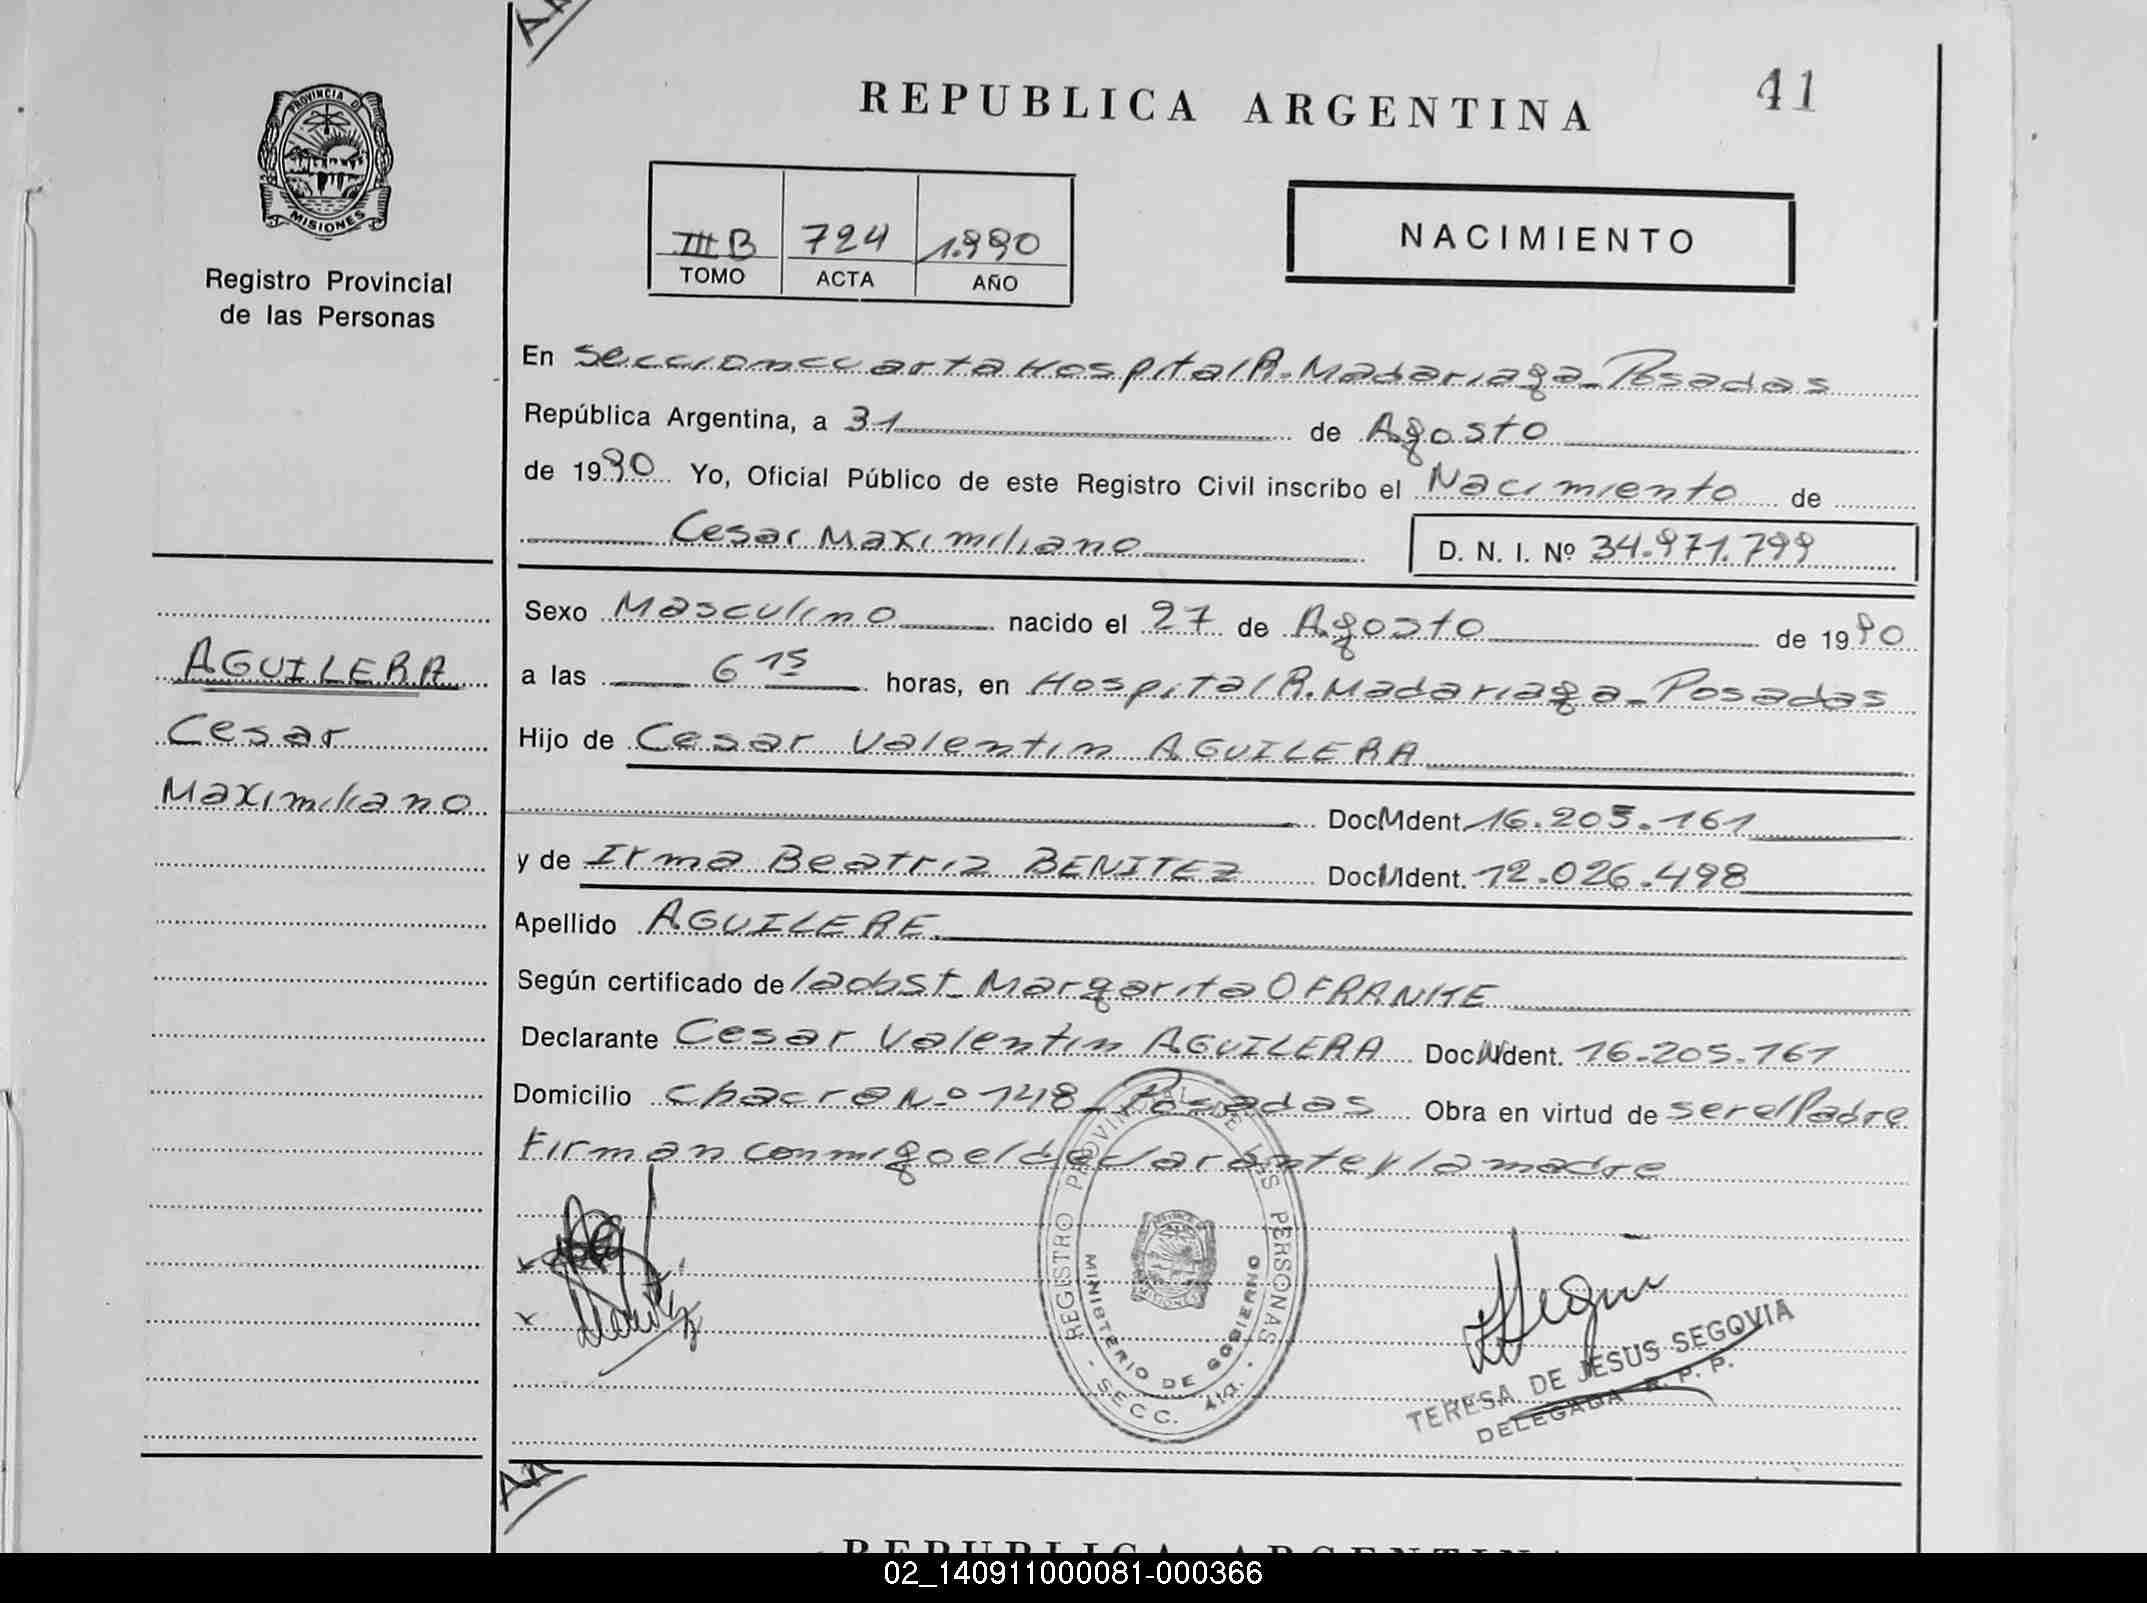 REPUBLICA ARGENTINA
41
PROVINCIA DE
MISIONES
Registro Provincial
de las Personas
III B 724 1.990
TOMO ACTA AÑO
NACIMIENTO
En Seccion cuarta Hospital R. Madariaga - Posadas
República Argentina, a 31 de Agosto
de 1990 Yo, Oficial Público de este Registro Civil inscribo el Nacimiento de
Cesar Maximiliano D. N. I. Nº 34.971.799
Sexo Masculino nacido el 27 de Agosto de 1990
a las 6 15 horas, en Hospital R. Madariaga - Posadas
Hijo de Cesar Valentin AGUILERA
Doc. Ident. 16.205.161
y de Irma Beatriz BENITEZ Doc. Ident. 12.026.498
Apellido AGUILERE
Según certificado de la obst. Margarita OFRANKE
Declarante Cesar Valentin AGUILERA Doc. Ident. 16.205.161
Domicilio Chacra Nº 148 - Posadas Obra en virtud de ser el Padre
Firman conmigo el declarante y la madre
AGUILERA
Cesar
Maximiliano
REGISTRO PROVINCIAL DE LAS PERSONAS
MINISTERIO DE GOBIERNO
- SECC. 4ta. -
MISIONES
TERESA DE JESUS SEGOVIA
DELEGADA R. P. P.
REPUBLICA ARGENTINA
02_140911000081-000366